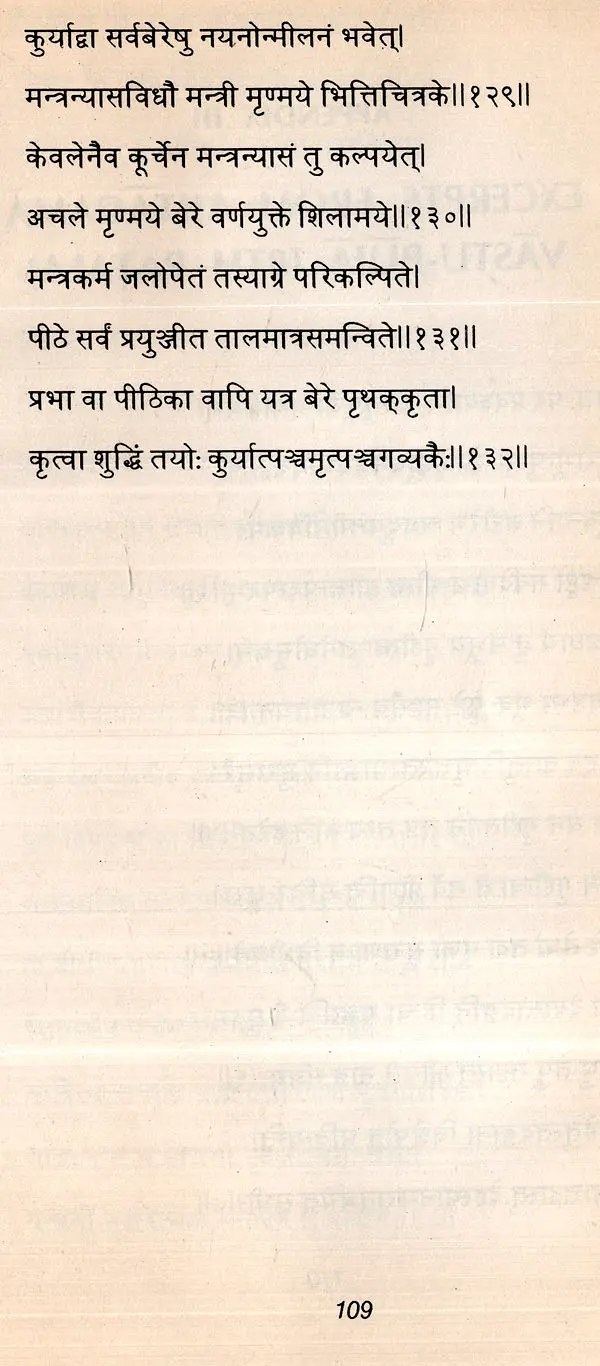 कुर्याद्वा सर्वबेरेषु नयनोन्मीलनं भवेत्।
मन्त्रन्यासविधौ मन्त्री मृण्मये भित्तिचित्रके।।१२९।।
केवलेनैव कूर्चेन मन्त्रन्यासं तु कल्पयेत्।
अचले मृण्मये बेरे वर्णयुक्ते शिलामये।।१३०।।
मन्त्रकर्म जलोपेतं तस्याग्रे परिकल्पिते।
पीठे सर्वं प्रयुञ्जीत तालमात्रसमन्विते।।१३१।।
प्रभा वा पीठिका वापि यत्र बेरे पृथक्कृता।
कृत्वा शुद्धिं तयोः कुर्यात्पञ्चमृत्पञ्चगव्यकैः।।१३२।।
109